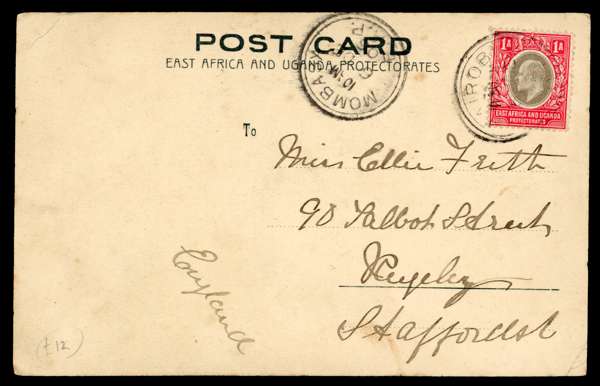 POST CARD
EAST AFRICA AND UGANDA PROTECTORATES
MOMBASA
10 AM
1A 1A
EAST AFRICA AND UGANDA
PROTECTORATES
To
Miss Ellie Frith
90 Talbot Street
Rugeley
Staffordst
England
(£12)